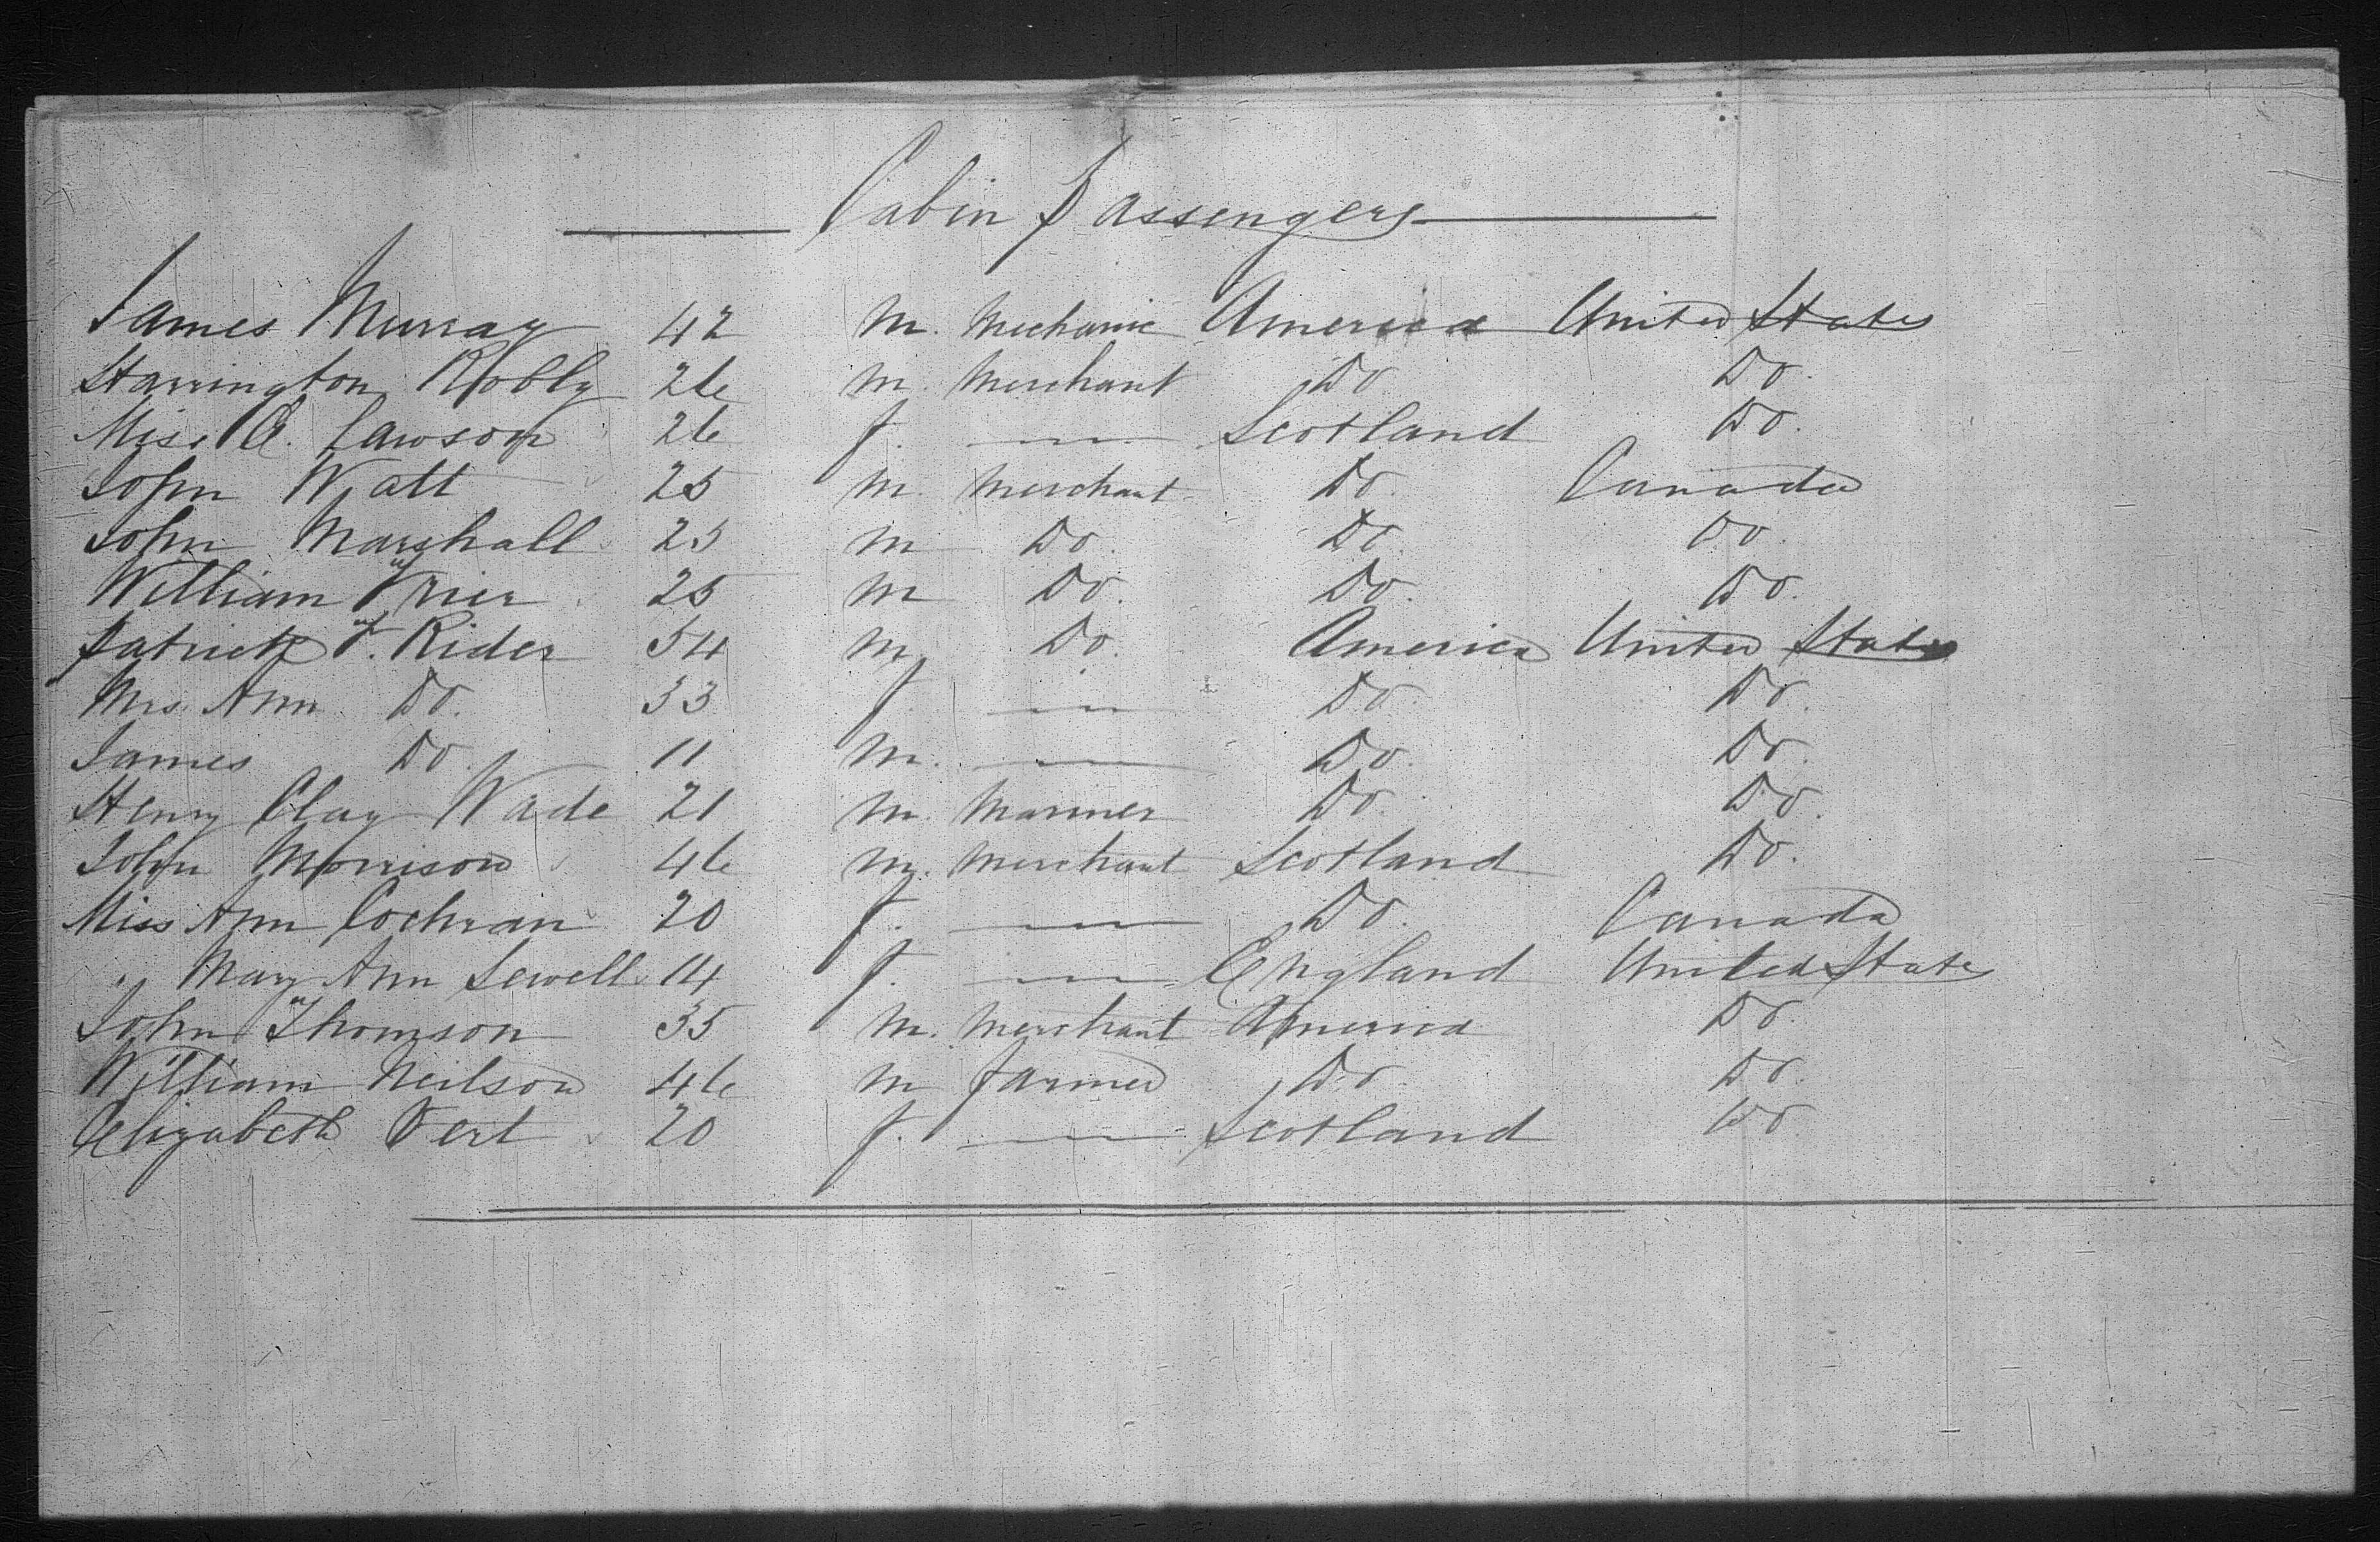 Cabin Passengers
James Murray 42 M. Mechanic America United States
Harrington Robly 26 M. Merchant Do Do.
Miss E. Lawson 26 f. — Scotland Do.
John Watt 25 M. Merchant Do. Canada
John Marshall 25 M Do. Do. Do.
William 25 M Do. Do. Do.
Patrick T. Rider 54 M Do. America United States
Mrs Ann Do. 33 f. — Do. Do.
James Do. 11 M. — Do. Do.
Henry Clay Wade 21 M. Mariner Do. Do.
John Morrison 46 M. Merchant Scotland Do.
Miss Ann Cochran 20 f. — Do. Canada
" Mary Ann Sewell 14 f. — England United States
John Thomson 35 M. Merchant America Do.
William Neilson 46 M farmer Do Do.
Elizabeth Vert 20 f. — Scotland Do